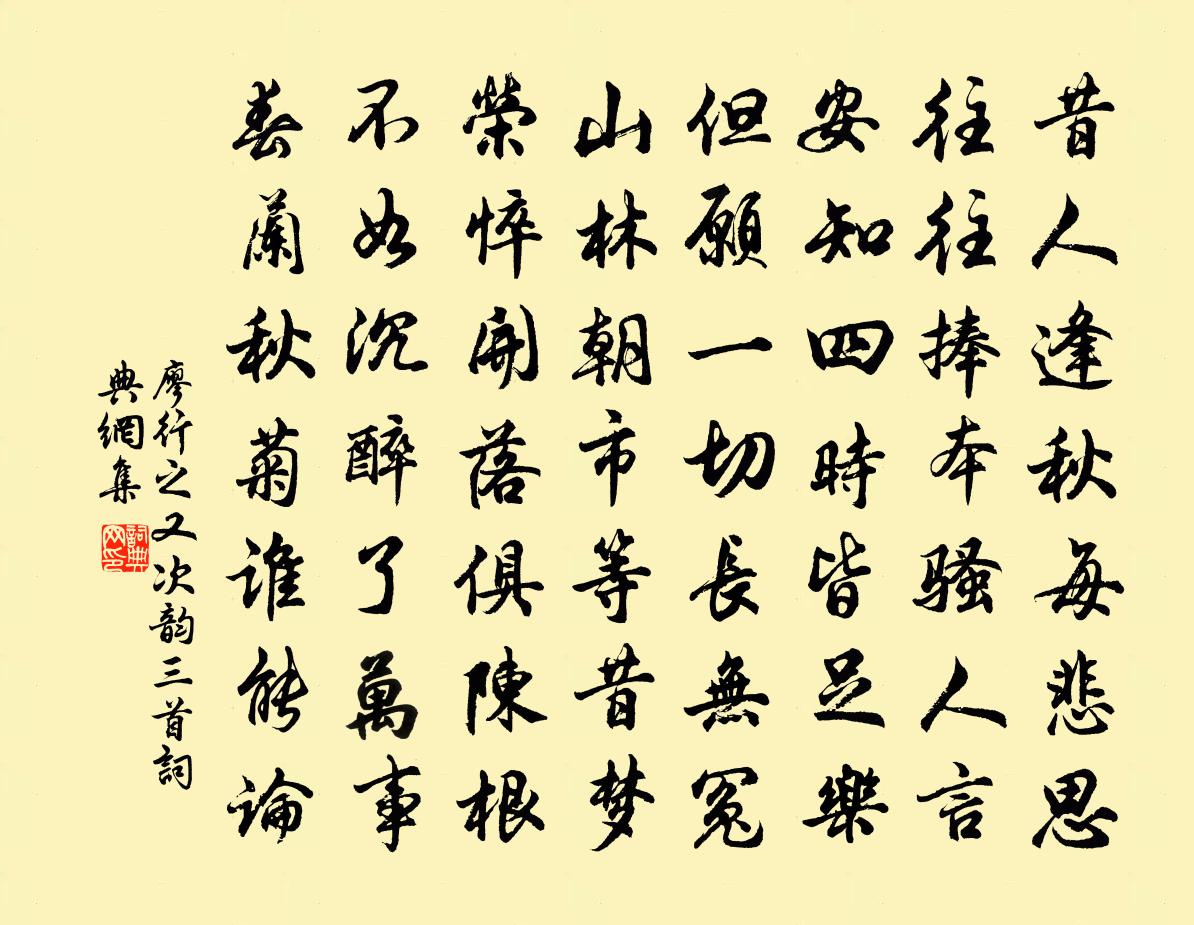 昔人逢秋每悲思
往往捧本騷人言
安知四時皆足樂
但願一切長無冤
山林朝市等昔梦
榮悴開落俱陳根
不如沉醉了萬事
春蘭秋菊誰能論
廖行之又次韵三首詞
典網集
詞典網印